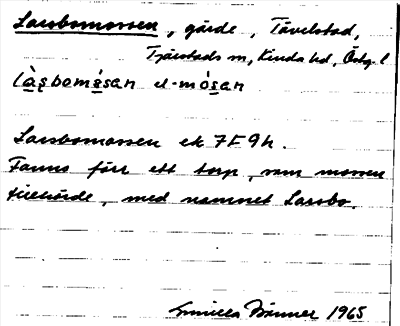 Larsbomossen, gärde, Tävelstad,
Tjärstads sn, Kinda hd, Östg. l
làsbommósan el -mósan
Larsbomossen ek 7F9h.
Fanns förr ett torp, som mossen
tillhörde, med namnet Larsbo.
Gunilla Bonner 1965